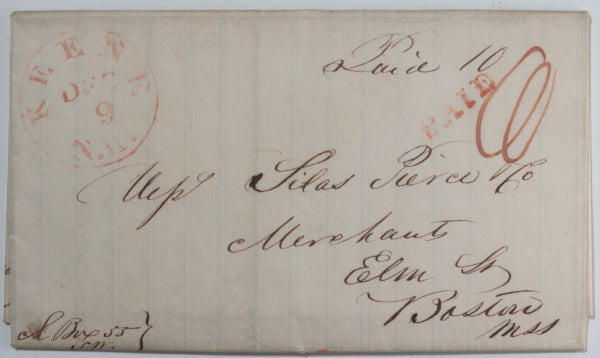 KEENE
DEC
9
N.H.
Paid 10
PAID
Messrs Silas Pierce & Co
Merchants
Elm St
Boston
Mss
Box 55